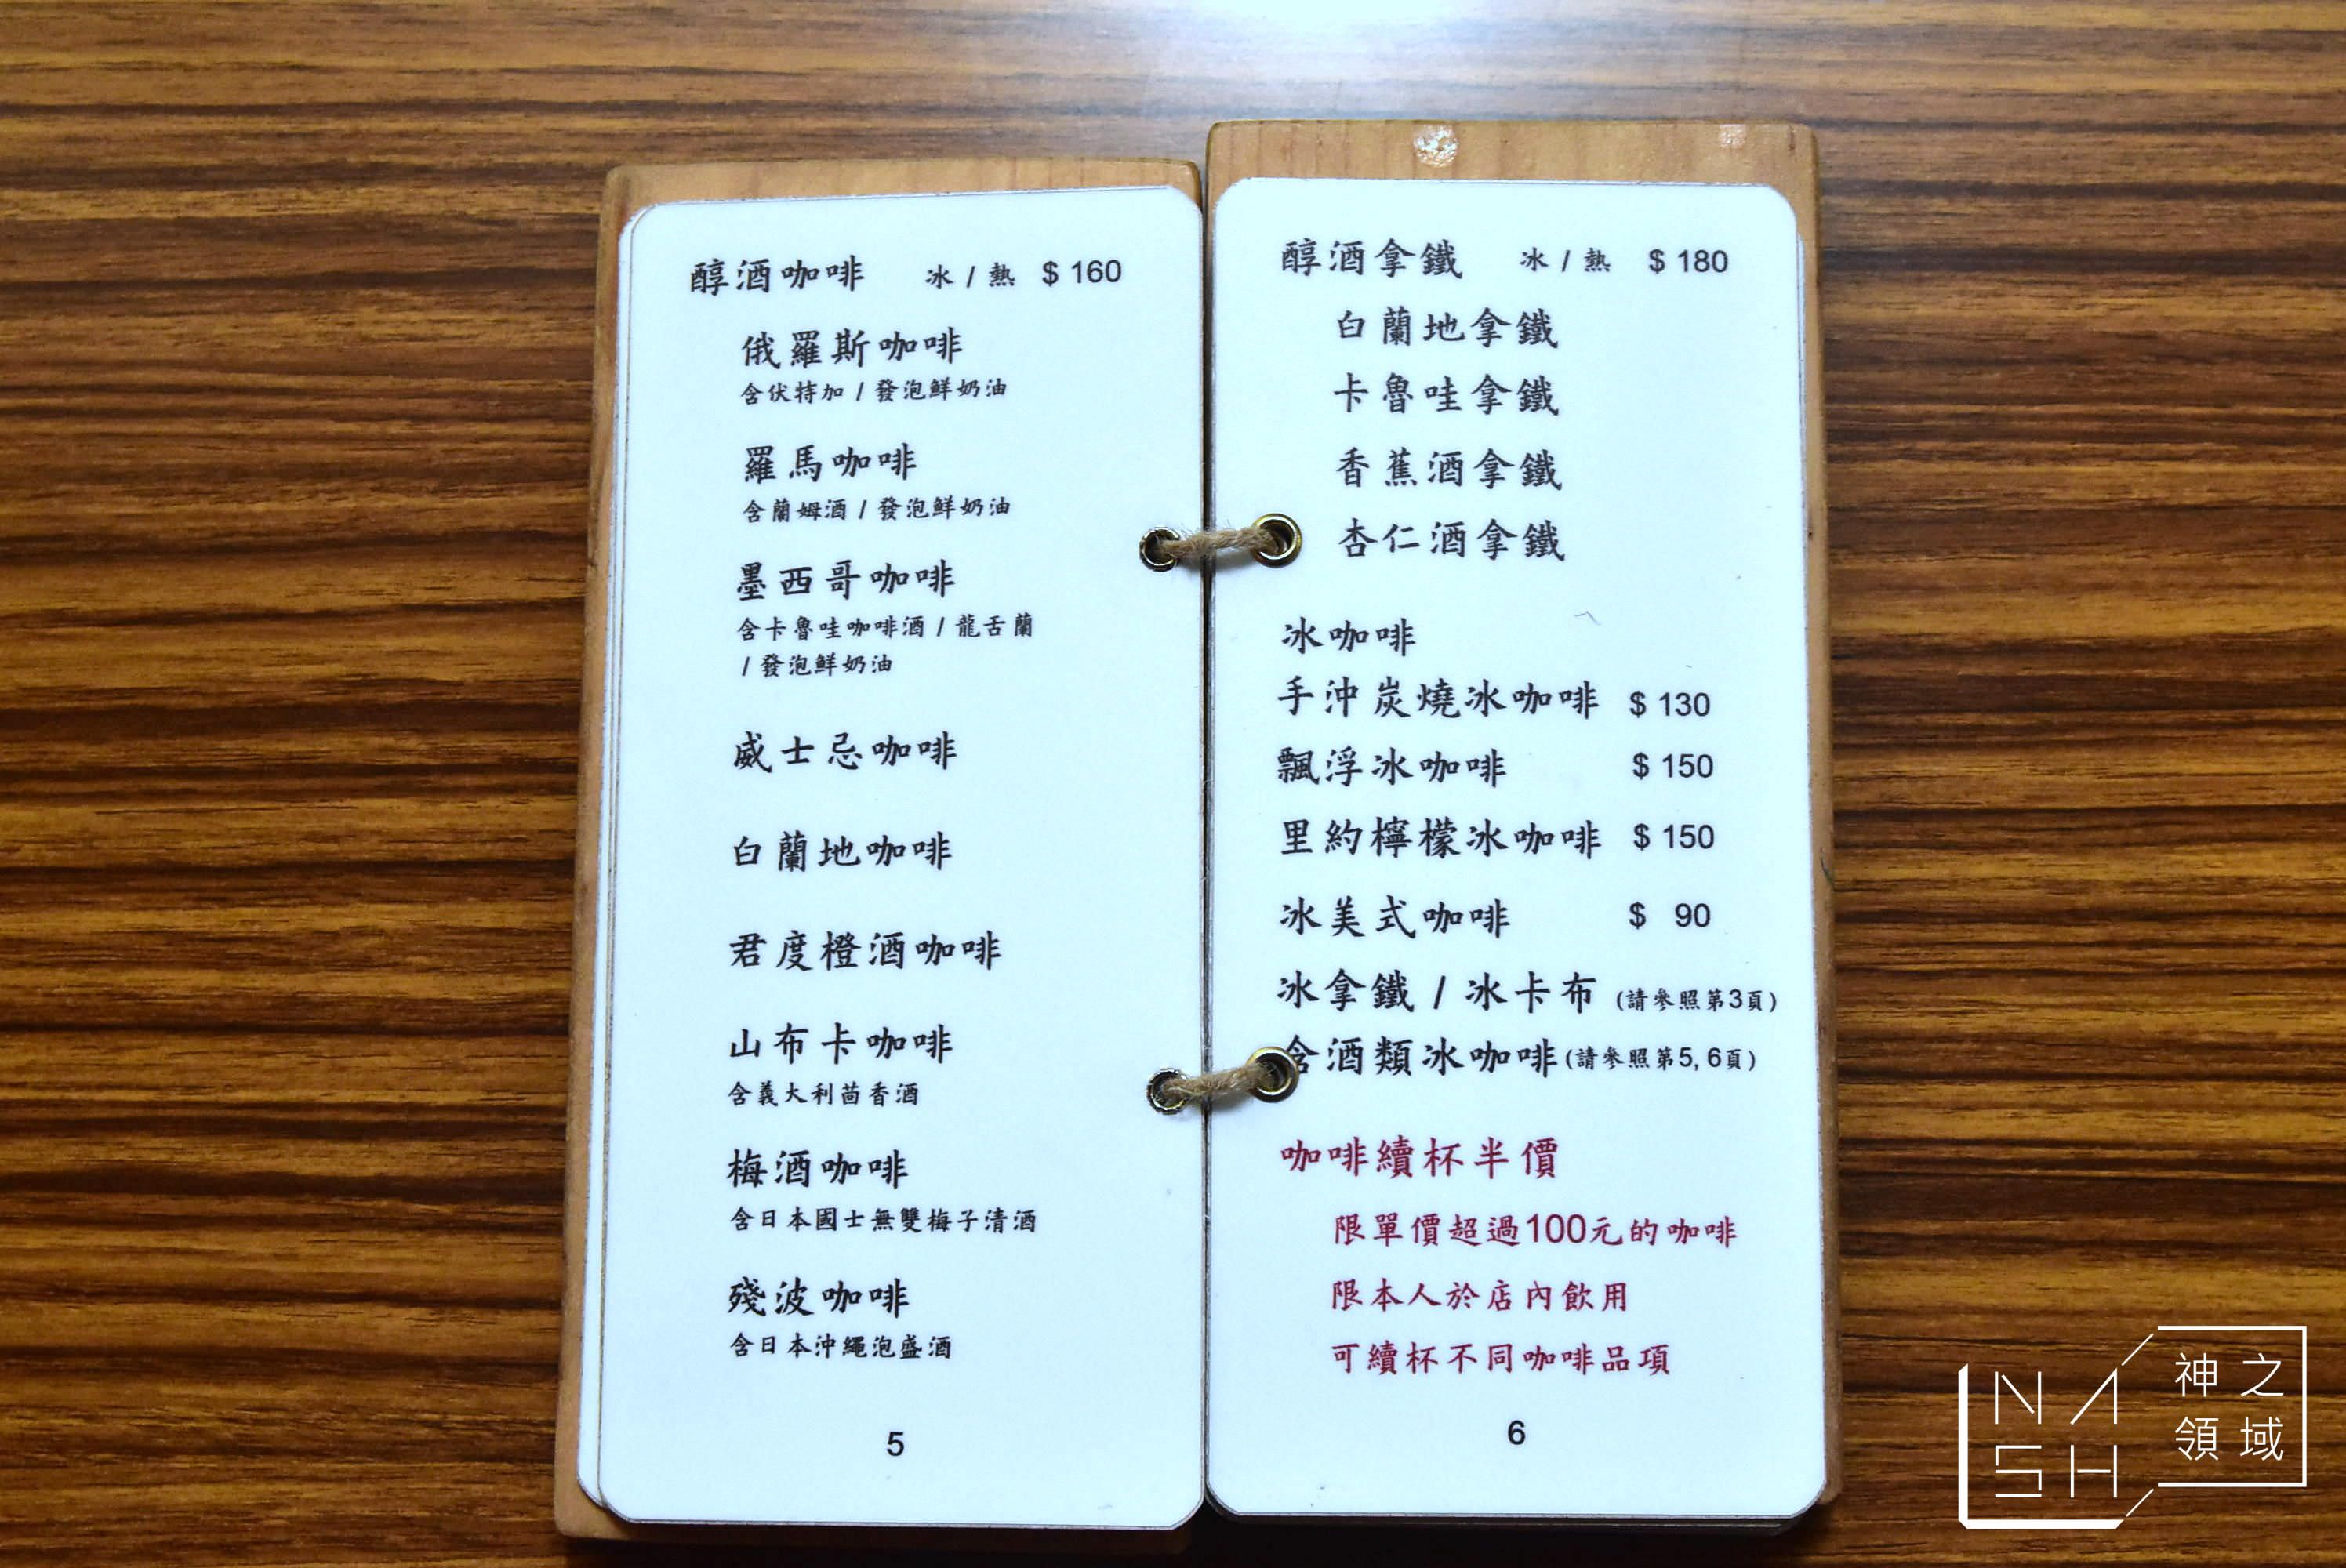 醇酒咖啡 冰 / 熱 $ 160
俄羅斯咖啡
含伏特加 / 發泡鮮奶油
羅馬咖啡
含蘭姆酒 / 發泡鮮奶油
墨西哥咖啡
含卡魯哇咖啡酒 / 龍舌蘭
/ 發泡鮮奶油
威士忌咖啡
白蘭地咖啡
君度橙酒咖啡
山布卡咖啡
含義大利茴香酒
梅酒咖啡
含日本國士無雙梅子清酒
殘波咖啡
含日本沖繩泡盛酒
5
醇酒拿鐵 冰 / 熱 $ 180
白蘭地拿鐵
卡魯哇拿鐵
香蕉酒拿鐵
杏仁酒拿鐵
冰咖啡
手沖炭燒冰咖啡 $ 130
飄浮冰咖啡 $ 150
里約檸檬冰咖啡 $ 150
冰美式咖啡 $ 90
冰拿鐵 / 冰卡布 (請參照第3頁)
含酒類冰咖啡 (請參照第5, 6頁)
咖啡續杯半價
限單價超過100元的咖啡
限本人於店內飲用
可續杯不同咖啡品項
6
NASH
神之
領域